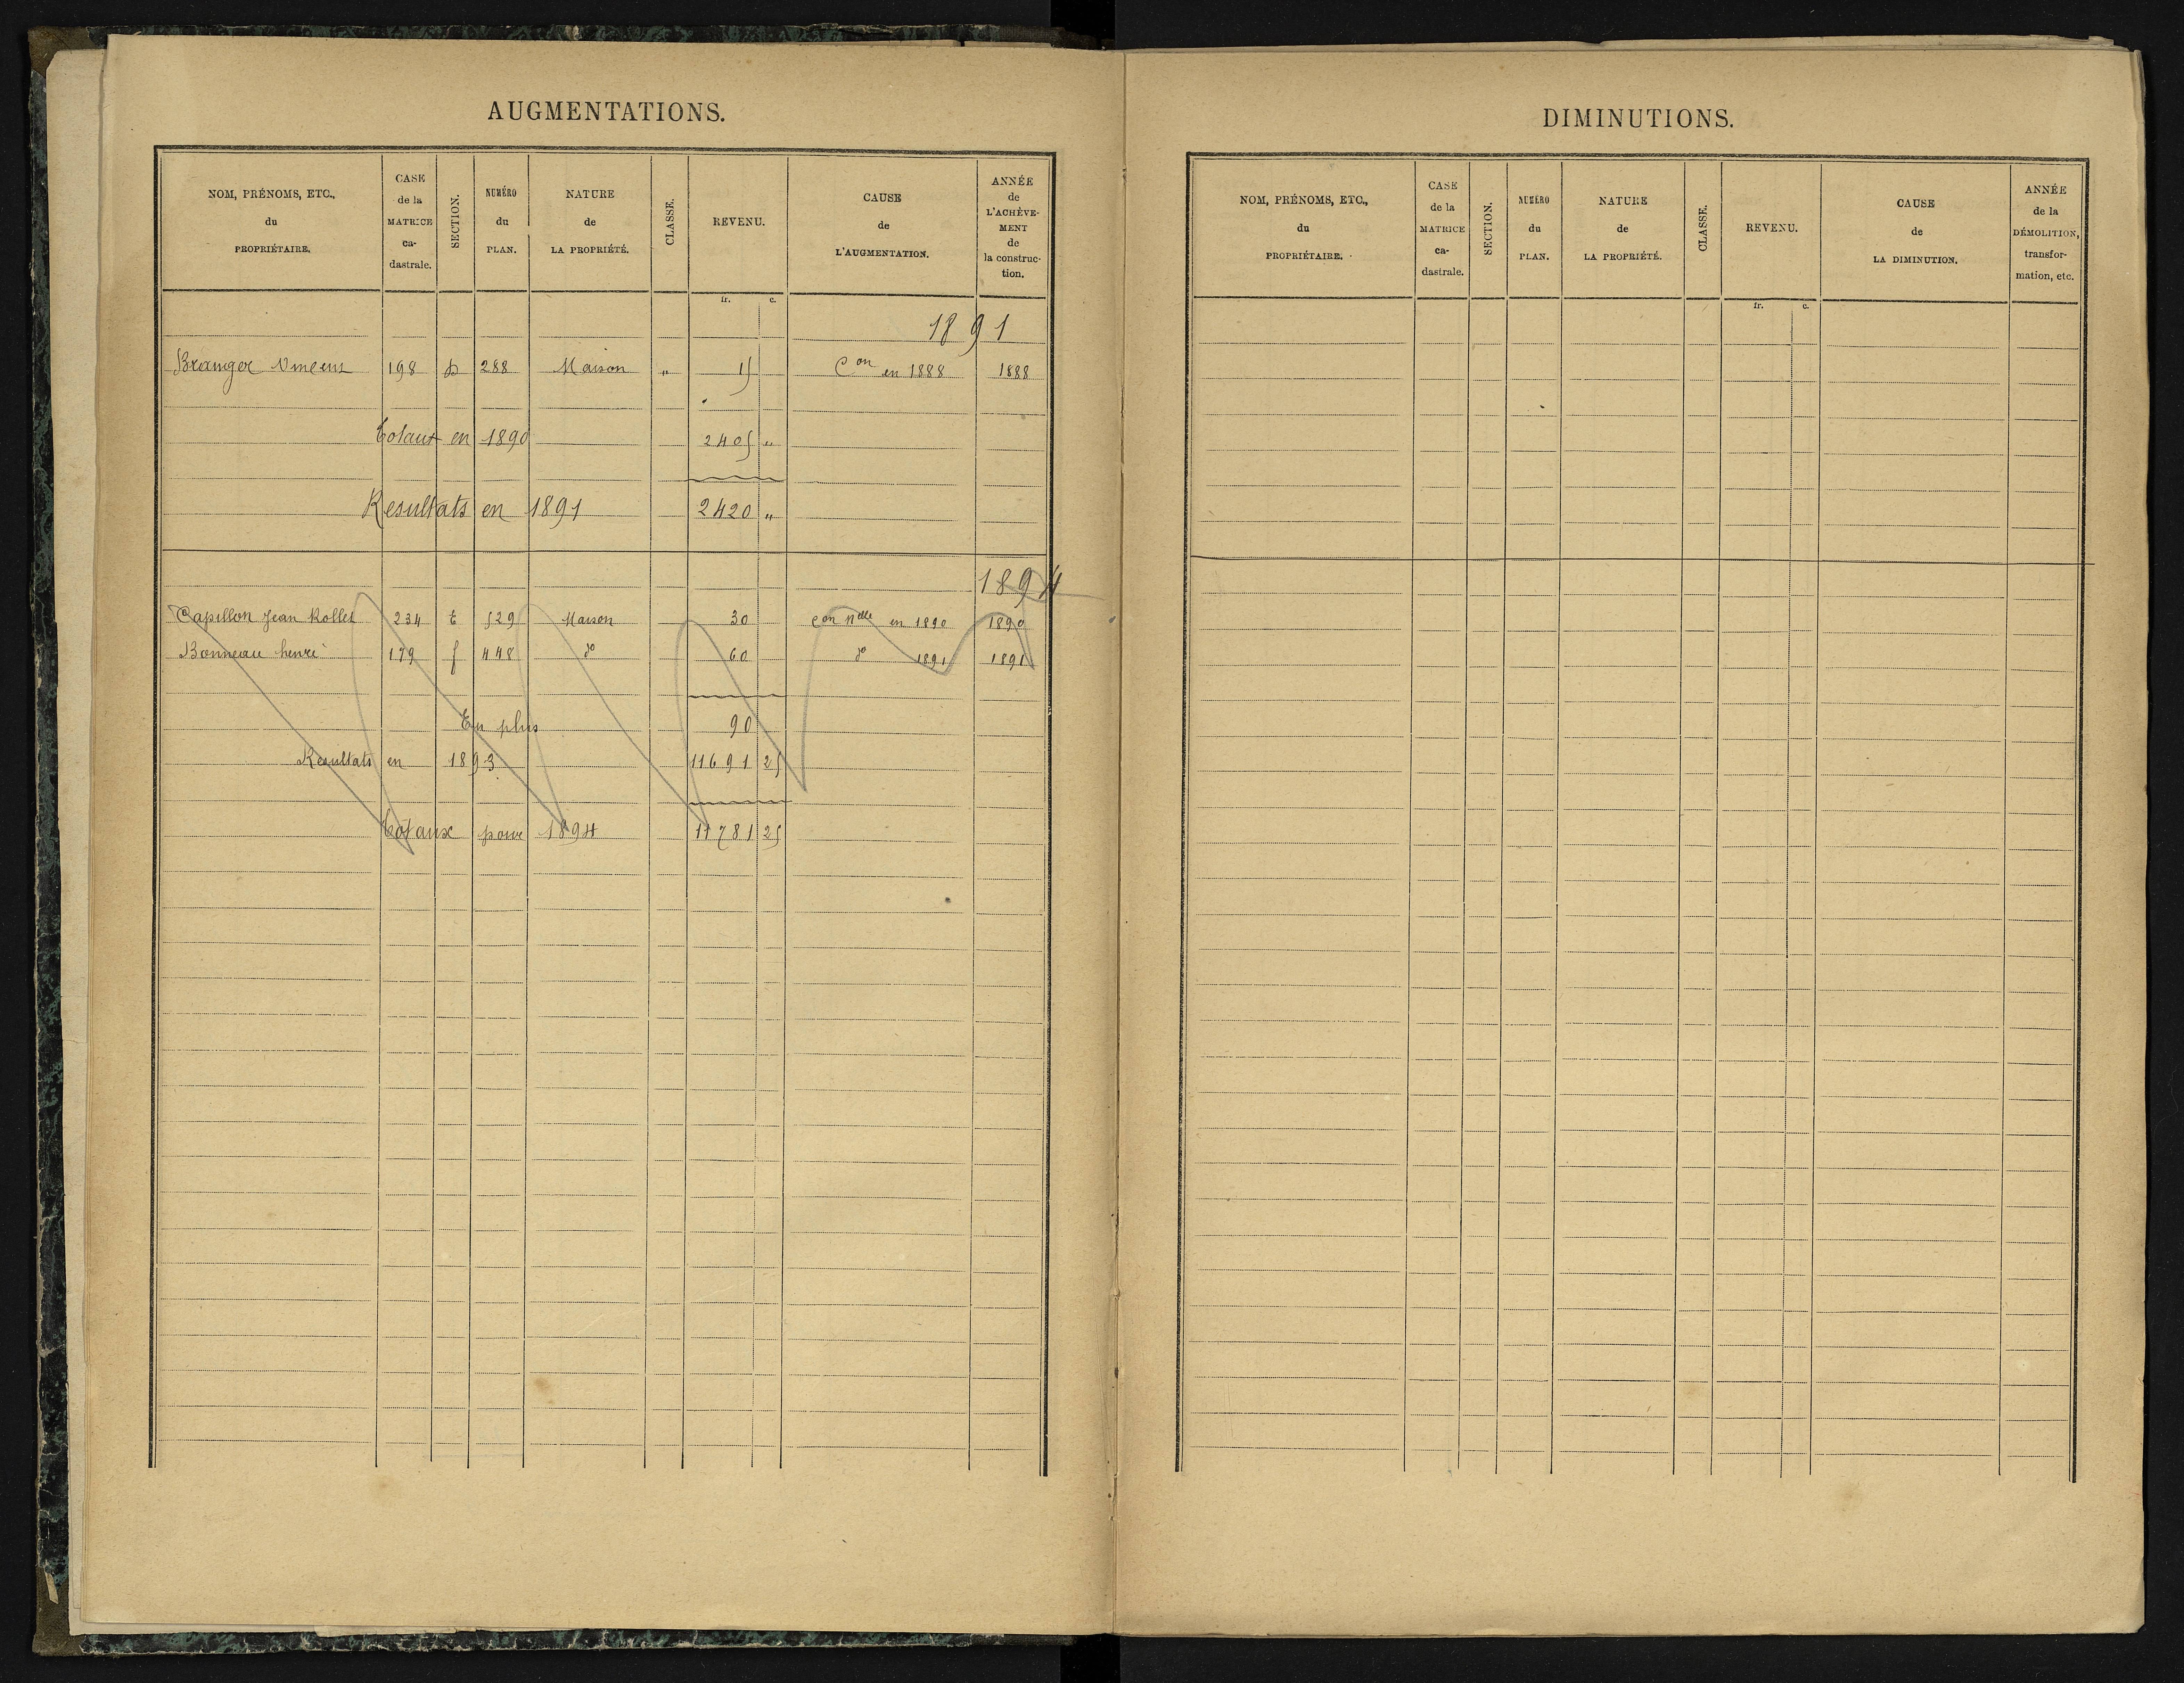 AUGMENTATIONS.
NOM, PRÉNOMS, ETC., du PROPRIÉTAIRE.
CASE de la MATRICE ca- dastrale.
SECTION.
NUMÉRO du PLAN.
NATURE de LA PROPRIÉTÉ.
CLASSE.
REVENU.
CAUSE de L'AUGMENTATION.
ANNÉE de L'ACHÈVE- MENT de la construc- tion.
fr. c.
1891
Branger Vincent 198 D 288 Maison " 15 Con en 1888 1888
Totaux en 1890 2405 "
Resultats en 1891 2420 "
1894
Capillon Jean Rollet 234 E 529 Maison 30 Con nelle en 1890 1890
Bonneau henri 179 f 448 do 60 do 1891 1891
En plus 90
Resultats en 1893 11691 25
Totaux pour 1894 11781 25
DIMINUTIONS.
NOM, PRÉNOMS, ETC., du PROPRIÉTAIRE.
CASE de la MATRICE ca- dastrale.
SECTION.
NUMÉRO du PLAN.
NATURE de LA PROPRIÉTÉ.
CLASSE.
REVENU.
CAUSE de LA DIMINUTION.
ANNÉE de la DÉMOLITION, transfor- mation, etc.
fr. c.